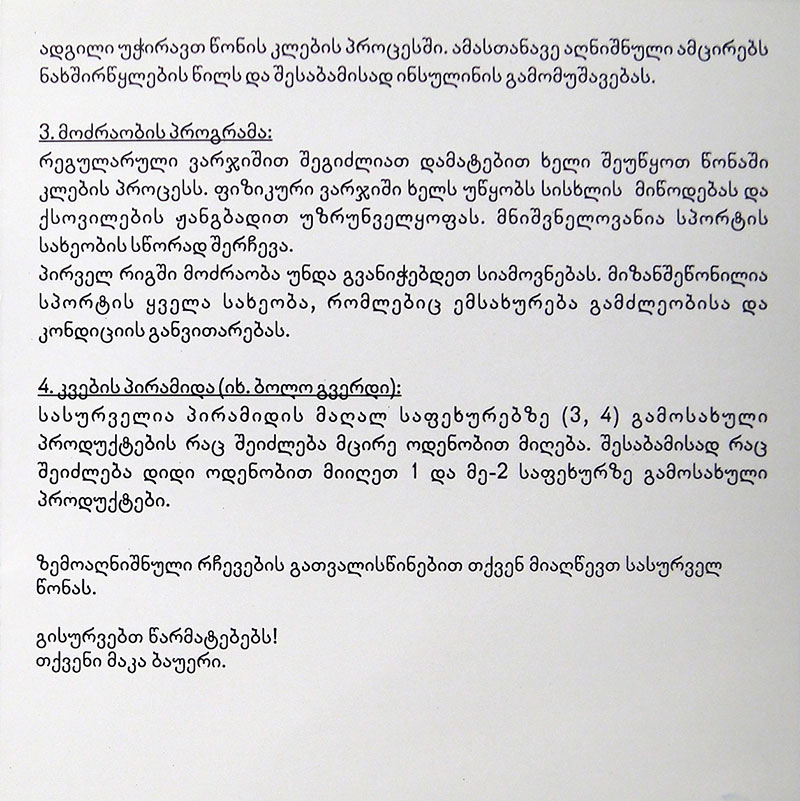 ადგილი უჭირავთ წონის კლების პროცესში. ამასთანავე აღნიშნული ამცირებს
ნახშირწყლების წილს და შესაბამისად ინსულინის გამომუშავებას.
3. მოძრაობის პროგრამა:
რეგულარული ვარჯიშით შეგიძლიათ დამატებით ხელი შეუწყოთ წონაში
კლების პროცესს. ფიზიკური ვარჯიში ხელს უწყობს სისხლის მიწოდებას და
ქსოვილების ჟანგბადით უზრუნველყოფას. მნიშვნელოვანია სპორტის
სახეობის სწორად შერჩევა.
პირველ რიგში მოძრაობა უნდა გვანიჭებდეთ სიამოვნებას. მიზანშეწონილია
სპორტის ყველა სახეობა, რომლებიც ემსახურება გამძლეობისა და
კონდიციის განვითარებას.
4. კვების პირამიდა (იხ. ბოლო გვერდი):
სასურველია პირამიდის მაღალ საფეხურებზე (3, 4) გამოსახული
პროდუქტების რაც შეიძლება მცირე ოდენობით მიღება. შესაბამისად რაც
შეიძლება დიდი ოდენობით მიიღეთ 1 და მე-2 საფეხურზე გამოსახული
პროდუქტები.
ზემოაღნიშნული რჩევების გათვალისწინებით თქვენ მიაღწევთ სასურველ
წონას.
გისურვებთ წარმატებებს!
თქვენი მაკა ბაუერი.